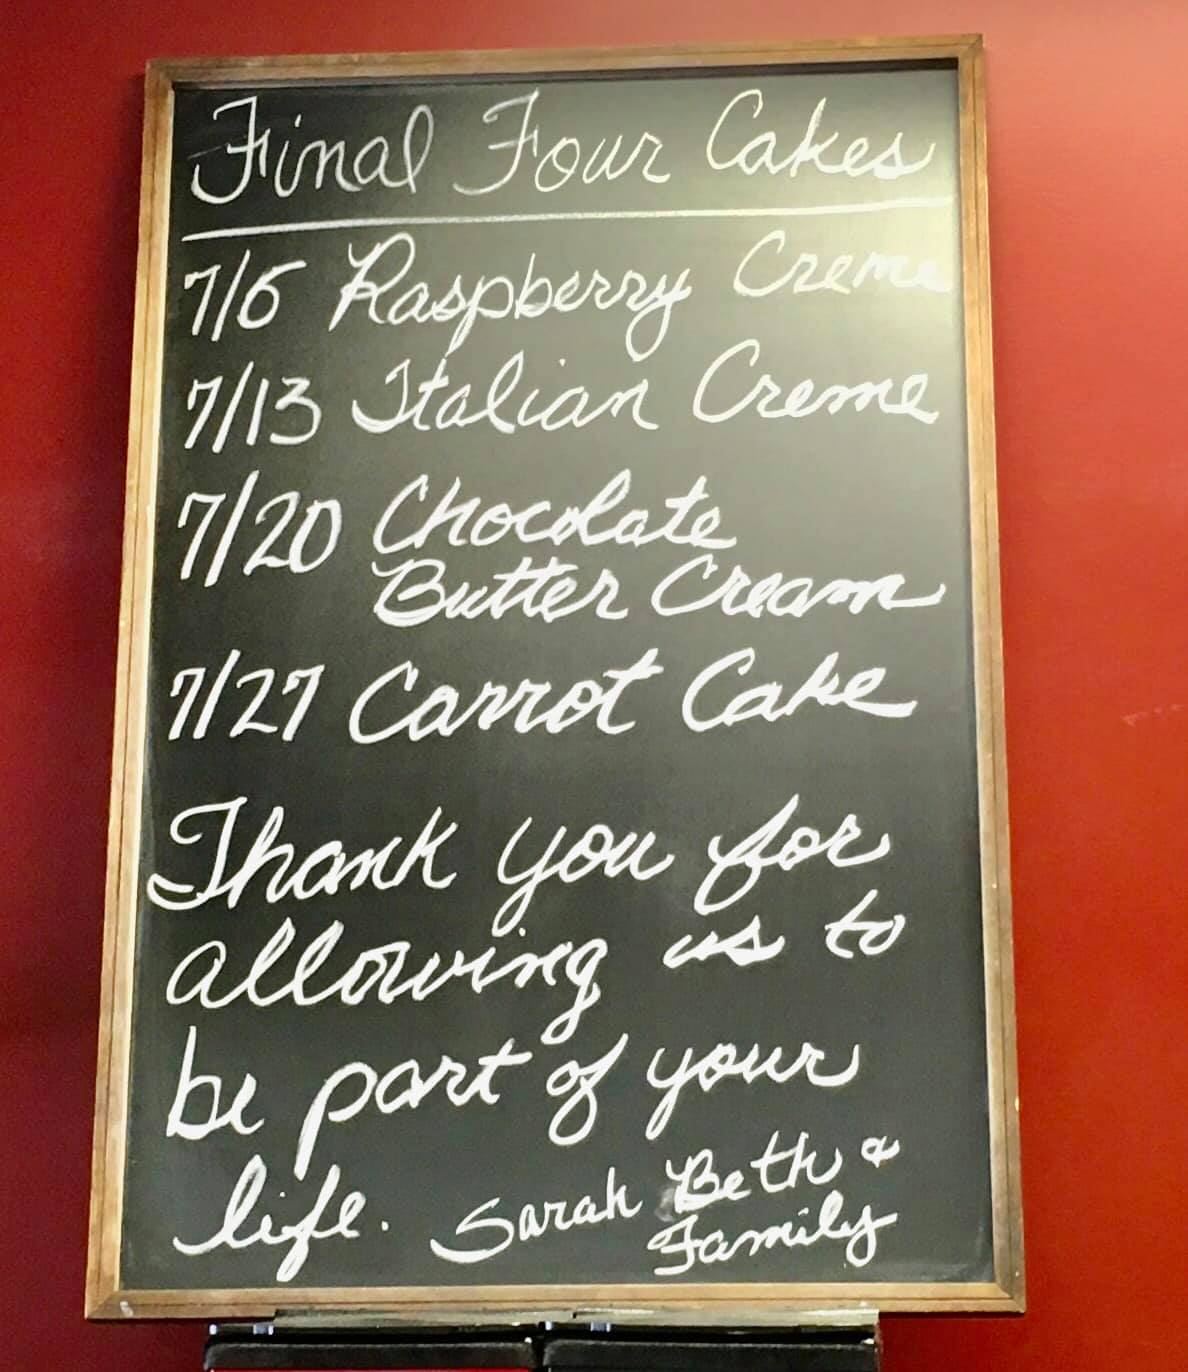 Final Four Cakes
7/6 Raspberry Creme
7/13 Italian Creme
7/20 Chocolate
Butter Cream
7/27 Carrot Cake
Thank you for
allowing us to
be part of your
life. Sarah Beth &
Family